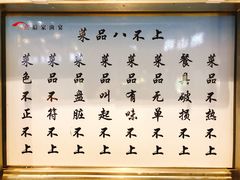 菜品八不上
菜品不热不上
餐具破损不上
菜品无单不上
菜品有味不上
菜品叫起不上
菜品盘脏不上
菜品不符不上
菜色不正不上